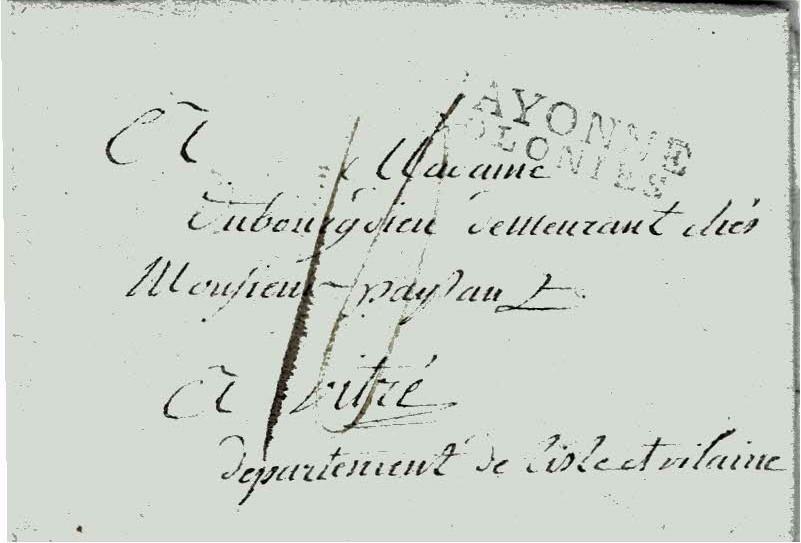 AYONNE
OLONIES
A
Madame
Dubourgdieu demeurant chés
Monsieur paysant
A vitré
departement de l'isle et vilaine